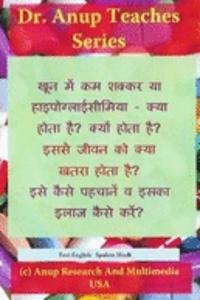 Dr. Anup Teaches
Series
खून में कम शक्कर या
हाइपोग्लाईसीमिया - क्या
होता है? क्यों होता है?
इससे जीवन को क्या
खतरा होता है?
इसे कैसे पहचानें व इसका
इलाज कैसे करें?
Text English Spoken Hindi
(c) Anup Research And Multimedia
USA